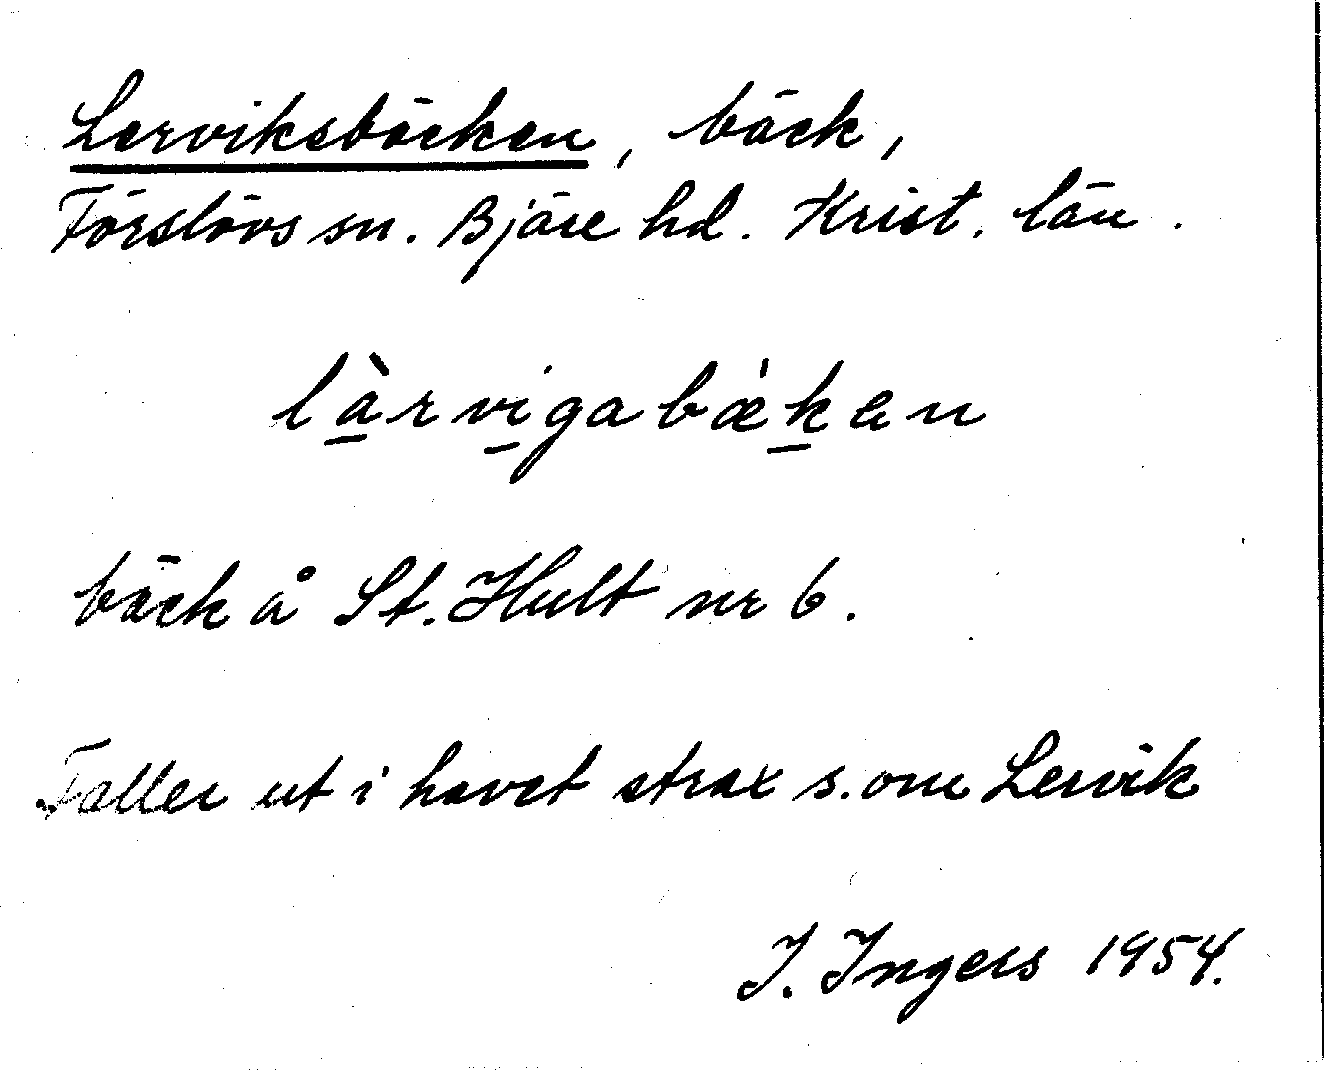 Lerviksbäcken, bäck,
Förslövs sn. Bjäre hd. Krist. län.
làrvigabæ̀ken
bäck å St. Hult nr 6.
Faller ut i havet strax s. om Lervik
I. Ingers 1954.